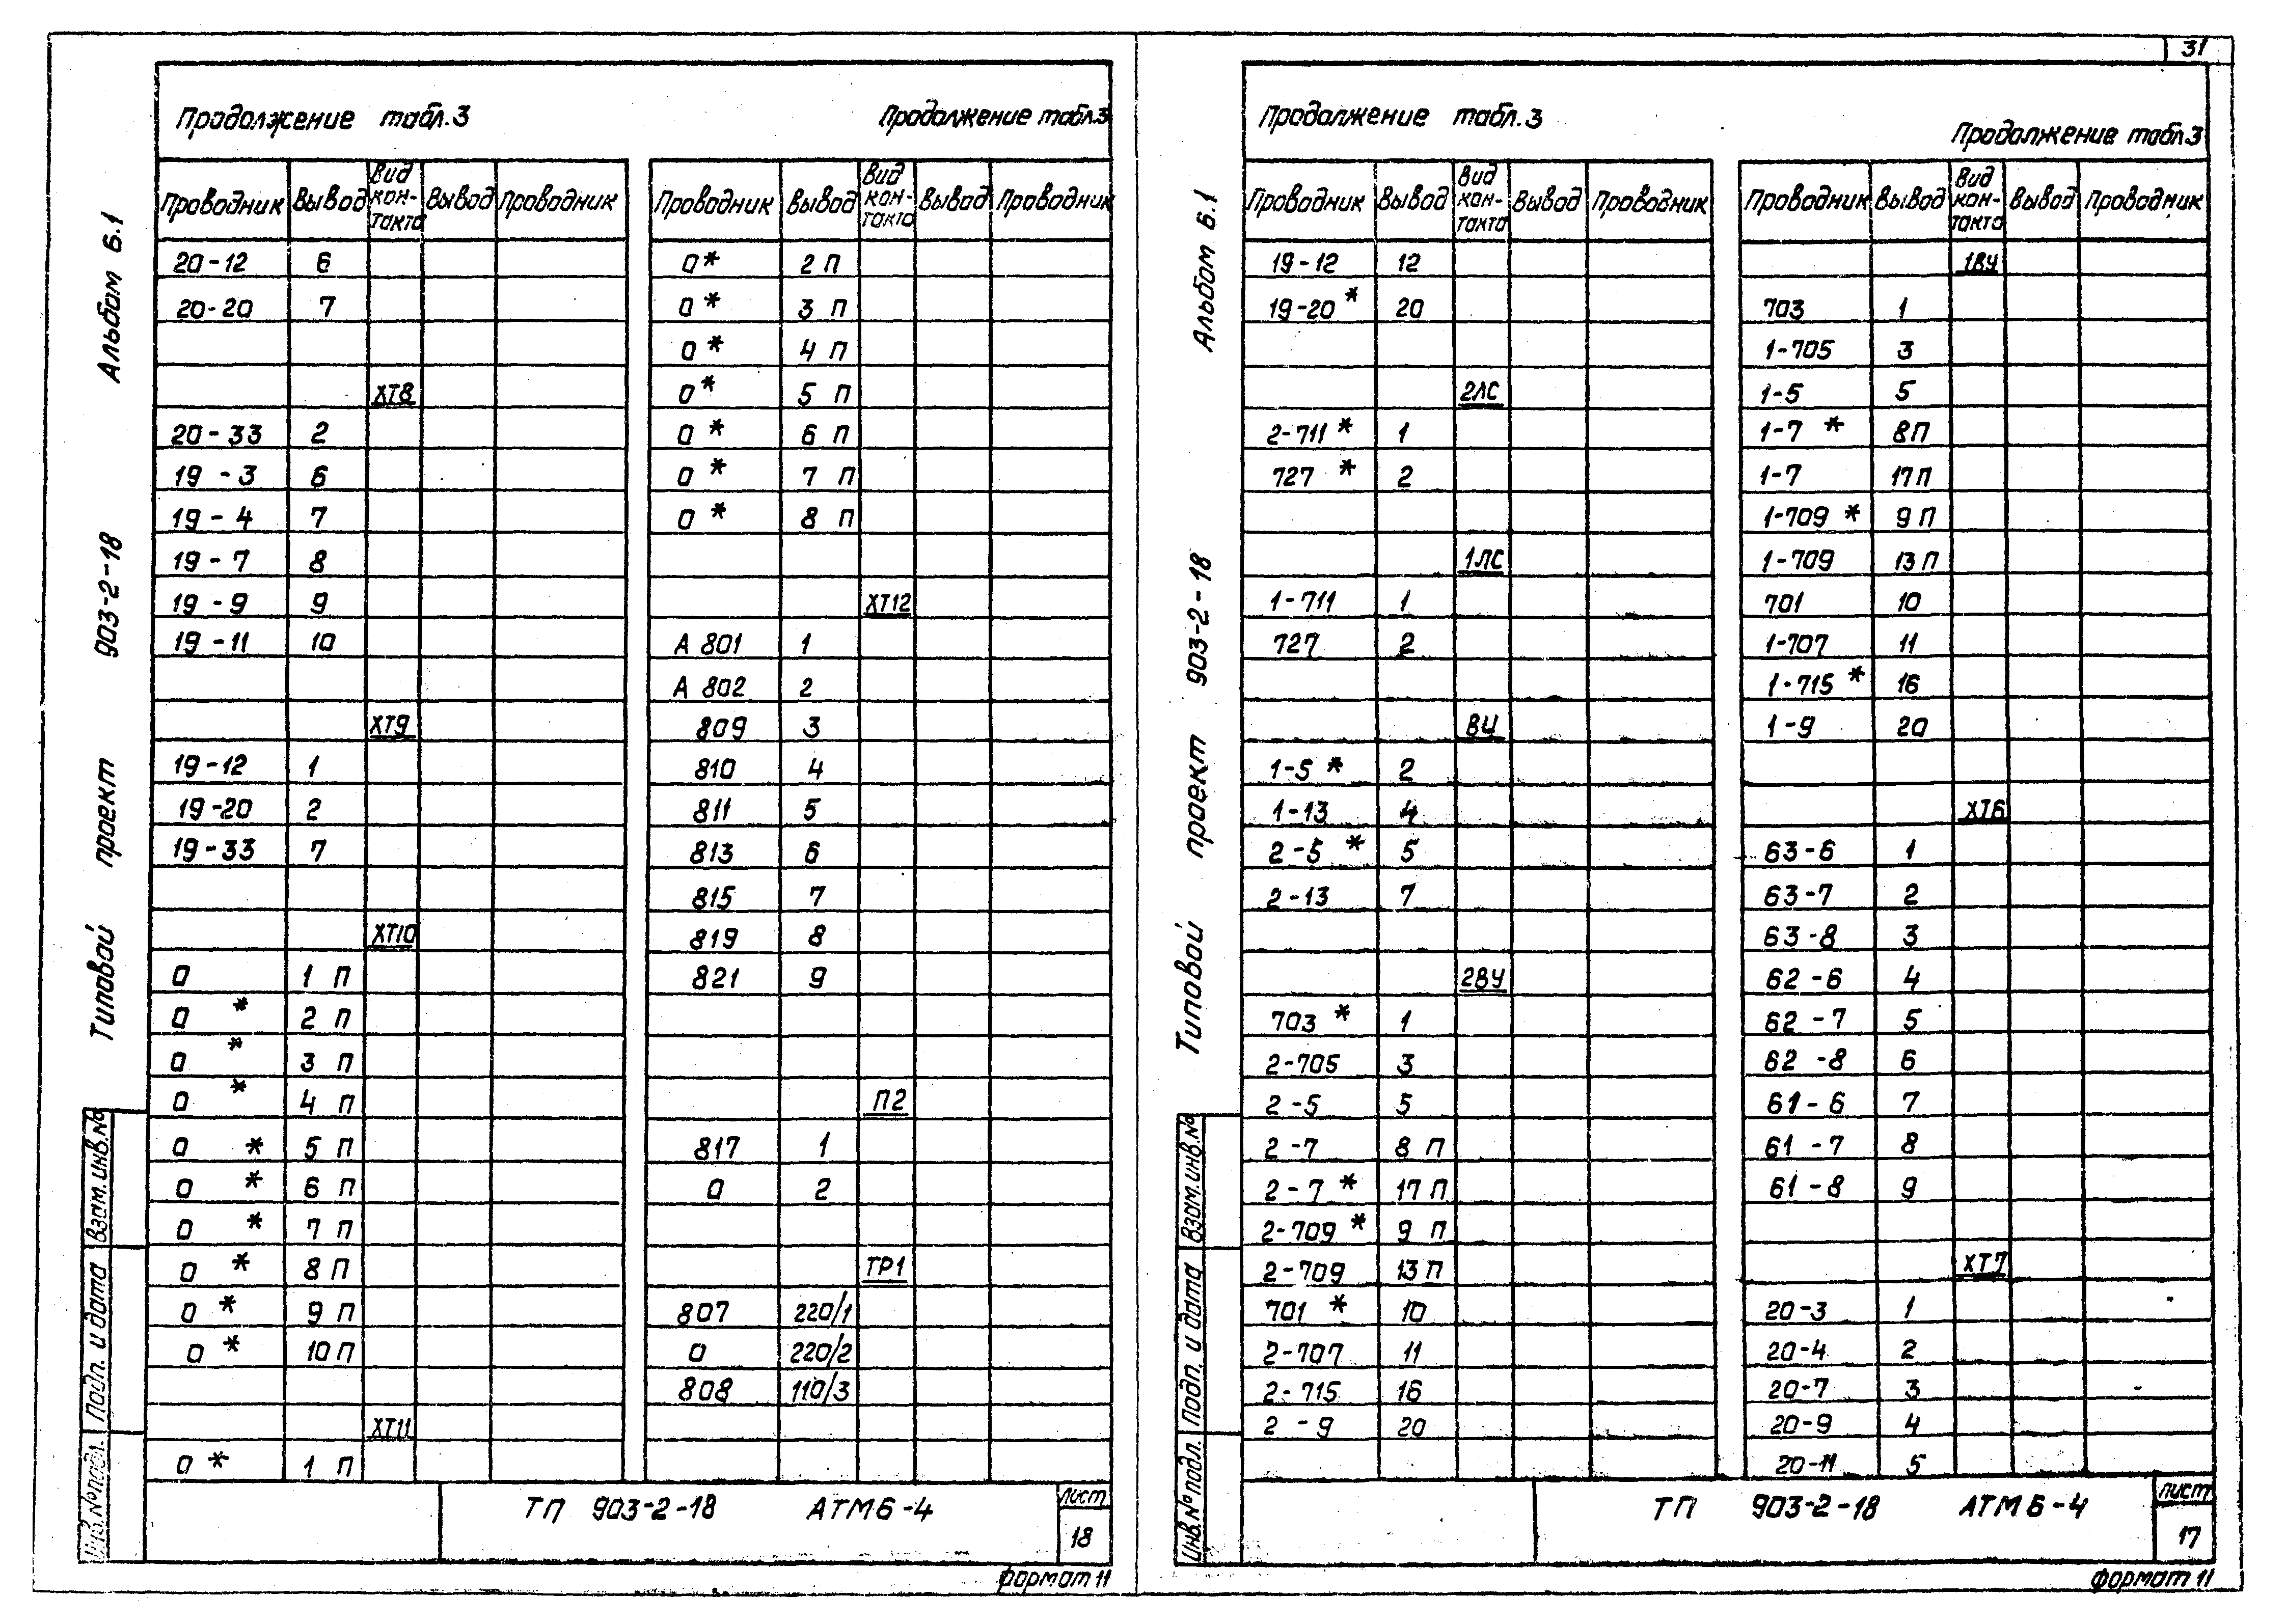 31
Альбом 6.1
903-2-18
Типовой проект
Взам.инв.№
Подп. и дата
Инв.№подл.
Продолжение табл.3
Проводник Вывод Вид кон-такта Вывод Проводник
20-12 6
20-20 7
ХТ8
20-33 2
19-3 6
19-4 7
19-7 8
19-9 9
19-11 10
ХТ9
19-12 1
19-20 2
19-33 7
ХТ10
0 1 П
0 * 2 П
0 * 3 П
0 * 4 П
0 * 5 П
0 * 6 П
0 * 7 П
0 * 8 П
0 * 9 П
0 * 10 П
ХТ11
0 * 1 П
Продолжение табл.3
Проводник Вывод Вид кон-такта Вывод Проводник
0 * 2 П
0 * 3 П
0 * 4 П
0 * 5 П
0 * 6 П
0 * 7 П
0 * 8 П
ХТ12
А 801 1
А 802 2
809 3
810 4
811 5
813 6
815 7
819 8
821 9
П2
817 1
0 2
ТР1
807 220/1
0 220/2
808 110/3
ТП 903-2-18 АТМ6-4
Лист
18
Формат 11
Альбом 6.1
903-2-18
Типовой проект
Взам.инв.№
Подп. и дата
Инв.№подл.
Продолжение табл.3
Проводник Вывод Вид кон-такта Вывод Проводник
19-12 12
19-20 * 20
2ЛС
2-711 * 1
727 * 2
1ЛС
1-711 1
727 2
ВЦ
1-5 * 2
1-13 4
2-5 * 5
2-13 7
2ВУ
703 * 1
2-705 3
2-5 5
2-7 8 П
2-7 * 17 П
2-709 * 9 П
2-709 13 П
701 * 10
2-707 11
2-715 16
2-9 20
Продолжение табл.3
Проводник Вывод Вид кон-такта Вывод Проводник
1ВУ
703 1
1-705 3
1-5 5
1-7 * 8П
1-7 17П
1-709 * 9 П
1-709 13 П
701 10
1-707 11
1-715 * 16
1-9 20
ХТ6
63-6 1
63-7 2
63-8 3
62-6 4
62-7 5
62-8 6
61-6 7
61-7 8
61-8 9
ХТ7
20-3 1
20-4 2
20-7 3
20-9 4
20-11 5
ТП 903-2-18 АТМ6-4
Лист
17
Формат 11